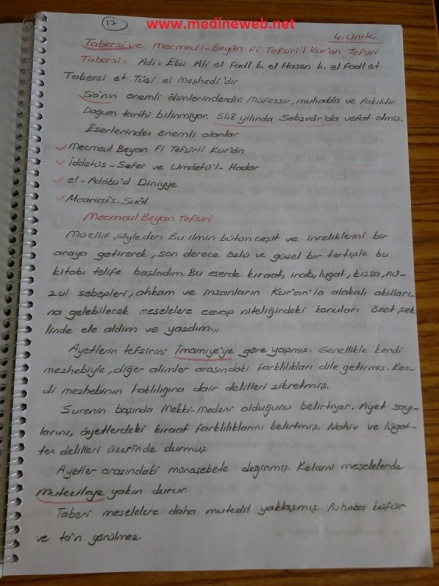 www.medineweb.net
17
4. Ünite
Tabersi ve Mecmeul-Beyân Fi Tefsiri'l Kur'ân Tefsiri
Tabersi: Adı: Ebu Ali el Fadl b. el Hasen b. el Fadl et
Tabersi et Tûsi el Meşhedi'dir
Şia'nın önemli âlimlerindendir. Müfessir, muhaddis ve fakihtir.
Doğum tarihi bilinmiyor. 548 yılında Sebzvâr'da vefat etmiş.
Eserlerinden önemli olanlar
Mecmeul Beyan Fi Tefsiril Kur'ân
İddetüs-Sefer ve Umdetü'l-Hadar
el-Adâbü'd Diniyye
Mearicü's-Suâl
Mecmeul Beyan Tefsiri
Müellif şöyle der: Bu ilmin bütün çeşit ve inceliklerini bir
araya getirerek, son derece özlü ve güzel bir tertiple bu
kitabı telife başladım. Bu eserde kıraat, irab, lügat, kıssa, nü-
zul sebepleri, ahkam ve insanların Kur'an'la alakalı akılları-
na gelebilecek meselelere cevap niteliğindeki konuları özet şek
linde ele aldım ve yazdım,,,
Ayetlerin tefsirini İmamiye'ye göre yapmış. Genellikle kendi
mezhebiyle, diğer alimler arasındaki farklılıkları dile getirmiş. Ken-
di mezhebinin haklılığına dair delilleri zikretmiş.
Surenin başında Mekki-medeni olduğunu belirtiyor. Ayet sayı-
larını, âyetlerdeki kıraat farklılıklarını belirtmiş. Nahiv ve lügat-
ten delilleri üzerinde durmuş
Ayetler arasındaki münasebete değinmiş. Kelami meselelerde
mutezileye yakın durur.
Taberi meselelere daha mutedil yaklaşmış. Ashaba küfür
ve ta'n görülmez